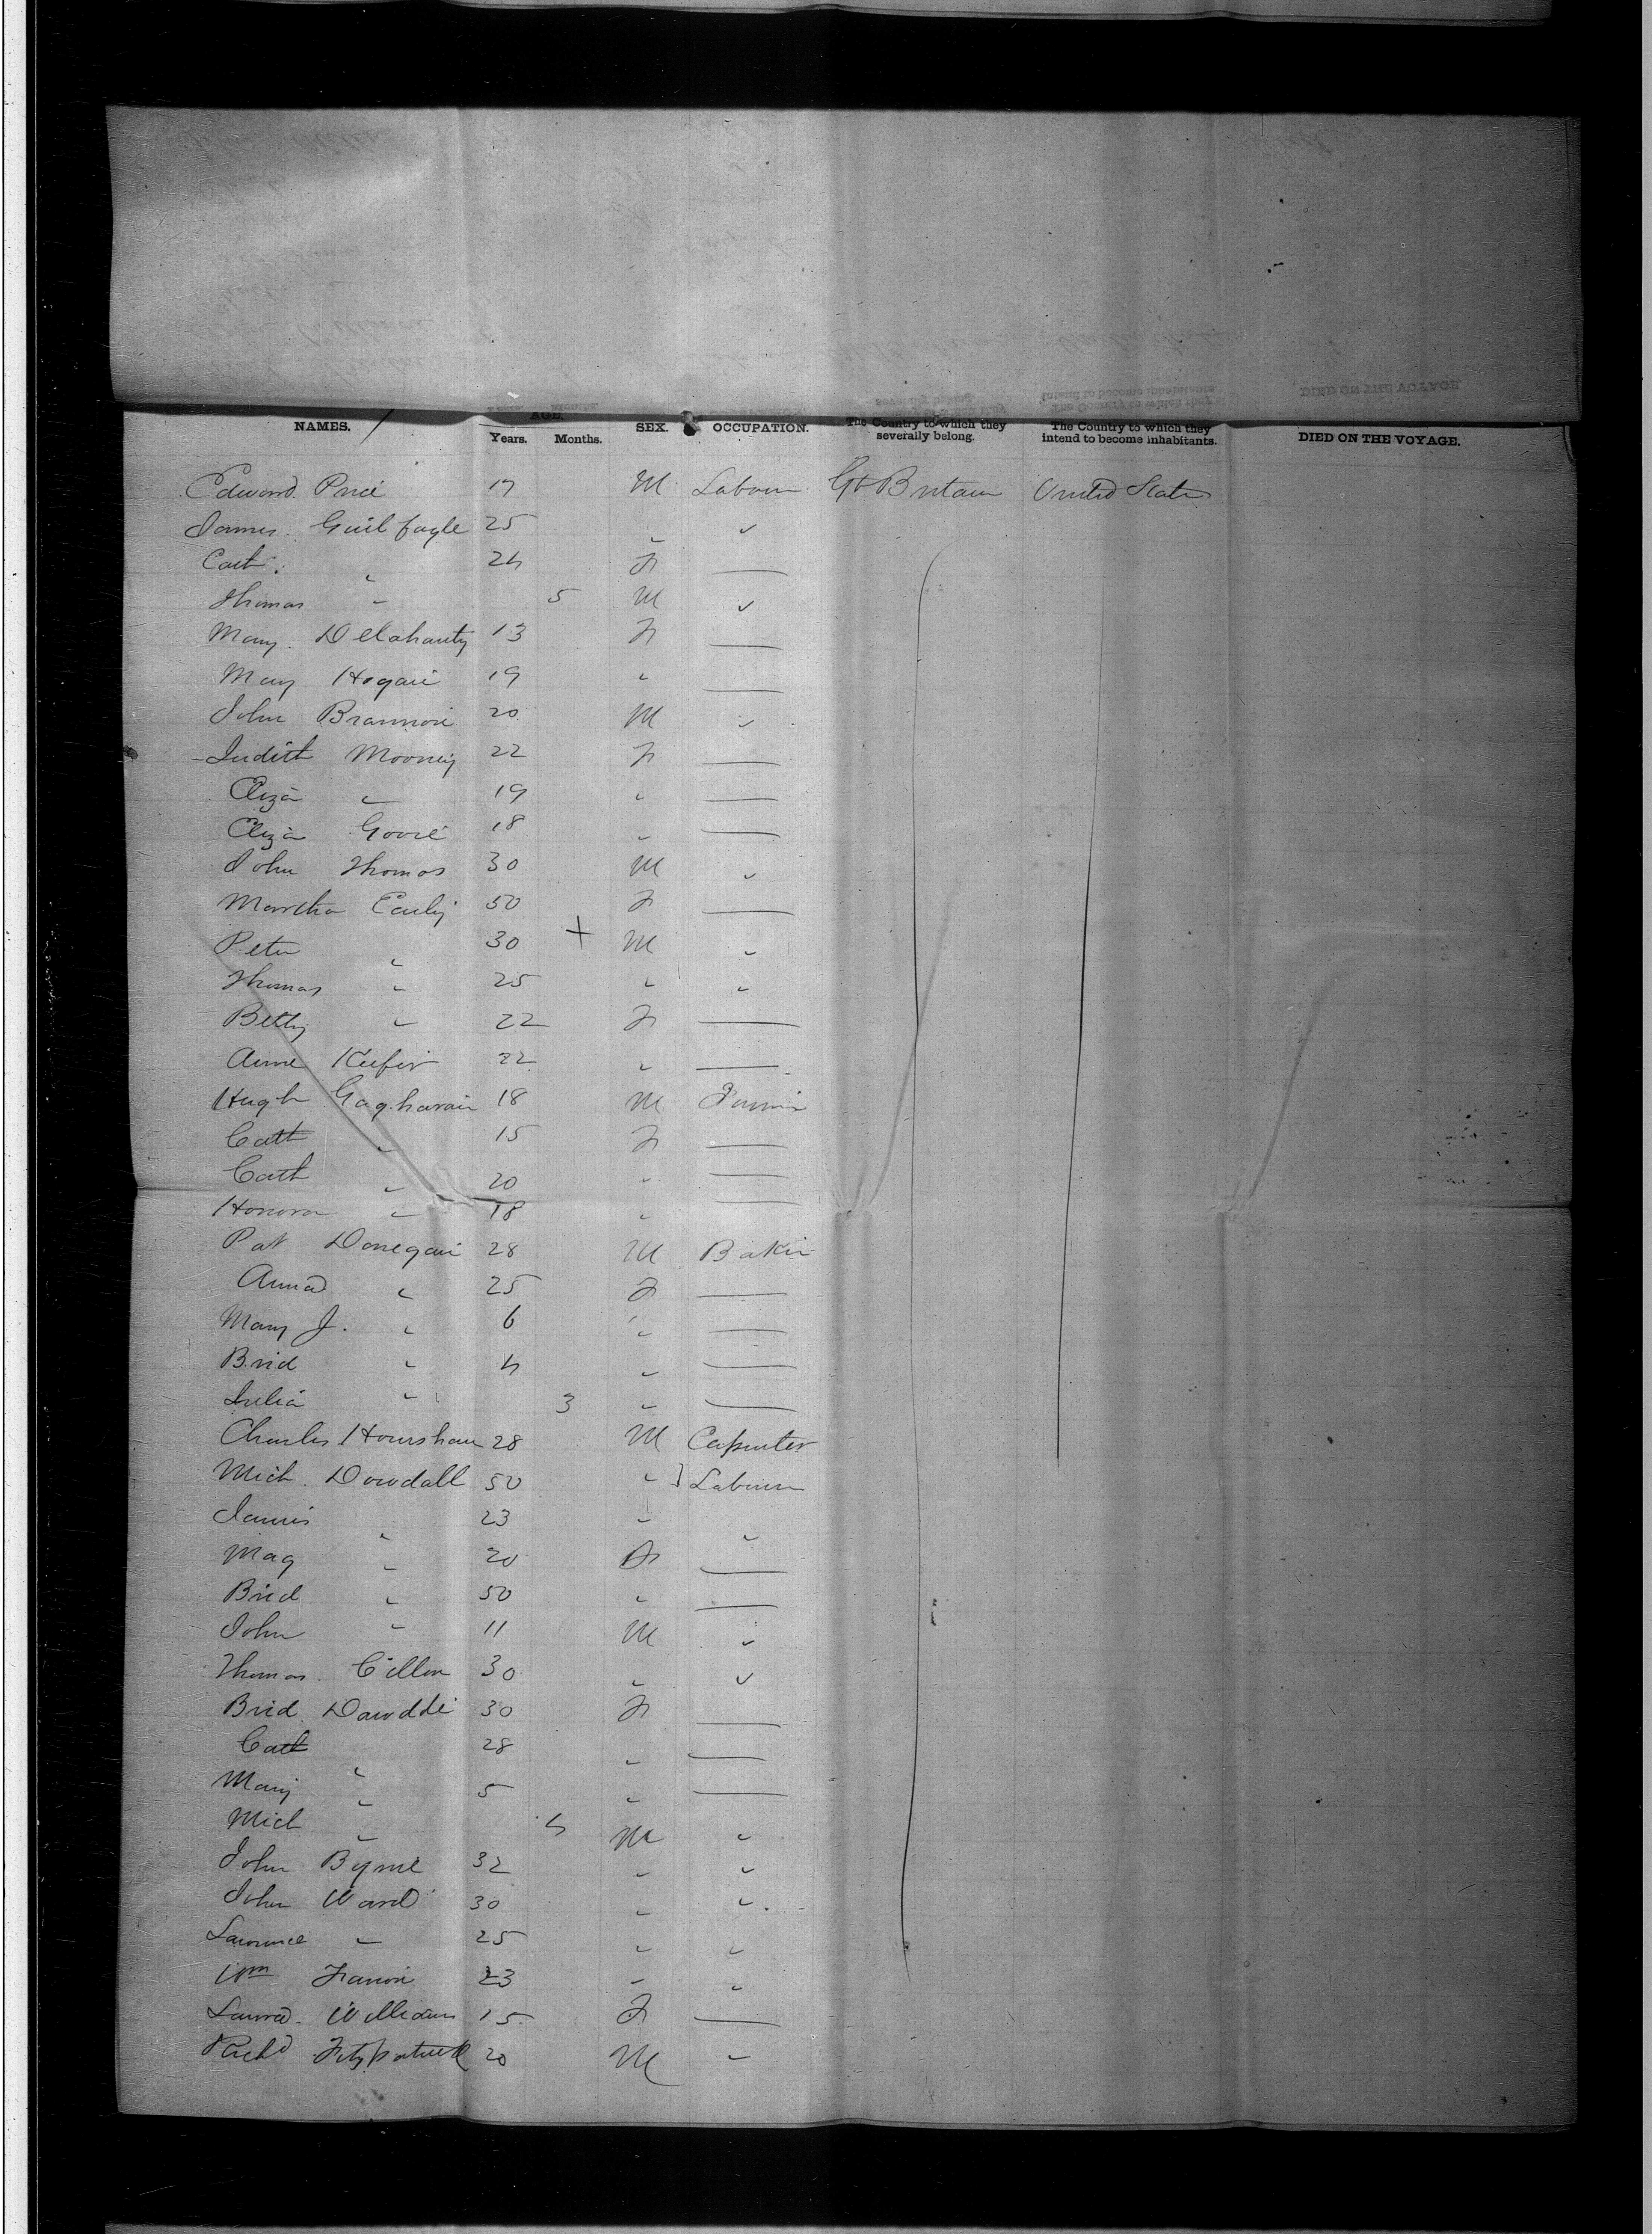 NAMES. AGE. Years. Months. SEX. OCCUPATION. The Country to which they severally belong. The Country to which they intend to become inhabitants. DIED ON THE VOYAGE.
Edward Price 17 M Labour Gt Britain United States
James Guilfoyle 25 " "
Cath. " 24 F —
Thomas " 5 M "
Mary Delahunty 13 F —
Mary Hogan 19 " —
John Brannon 20 M "
Judith Mooney 22 F —
Eliza " 19 " —
Eliza 18 " —
John Thomas 30 M "
Martha Early 50 F —
Peter " 30 + M "
Thomas " 25 " "
Betty " 22 F —
Anne Keefer 22 " —
Hugh 18 M
Cath " 15 F —
Cath " 20 " —
Honora " 18 " —
Pat Donegan 28 M Baker
Anna " 25 F —
Mary J. " 6 " —
Brid " 4 " —
Julia " 3 " —
Charles 28 M Carpenter
Mich. Dowdall 50 " } Labour
James " 23 " "
Mag " 20 F —
Brid " 50 " —
John " 11 M "
Thomas Cillen 30 " "
Brid. 30 F —
Cath " 28 " —
Mary " 5 " —
Mich " 4 M "
John Byrne 32 " "
John Ward 30 " "
Lawrence " 25 " "
Wm 23 " "
Laura Williams 15 F —
Richd Fitzpatrick 20 M "